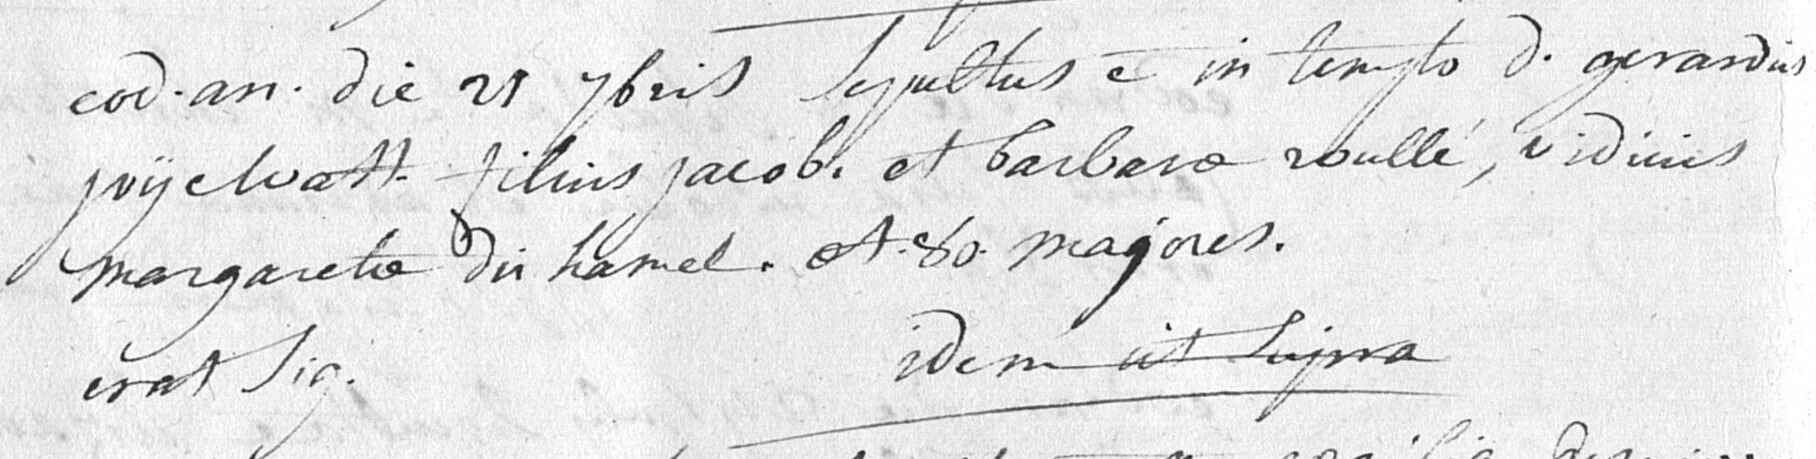 eod. an. die 21 7bris Sepultus e in templo d. gerardus
pijelvatt. filius jacob. et barbarae roullé, viduus
margaretae du hamel. aet. 80. majores.
erat sig. idem ut supra